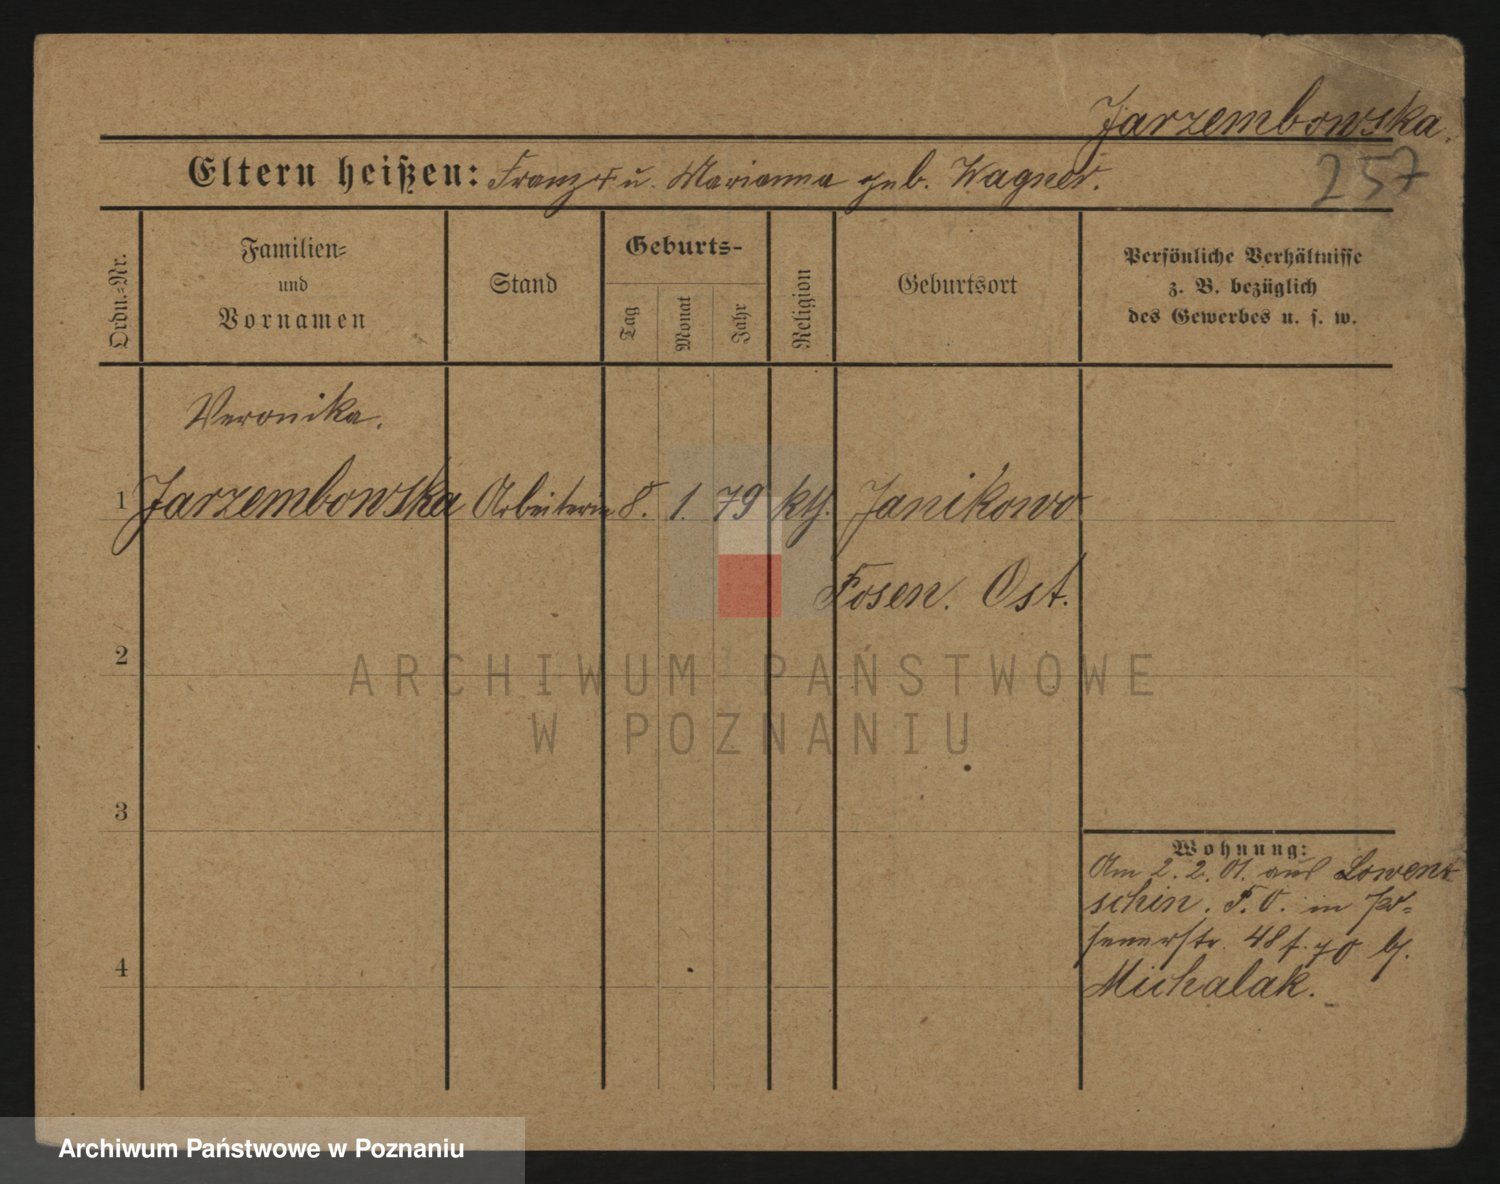 Jarzembowska.
Eltern heißen: Franz + u. Marianna geb. Wagner.
257
Ordn.-Nr.
Familien-
und
Vornamen
Stand
Geburts-
Tag
Monat
Jahr
Religion
Geburtsort
Persönliche Verhältnisse
z. B. bezüglich
des Gewerbes u. s. w.
Veronika.
1 Jarzembowska Arbeiterin 8. 1. 79 kth. Janikowo
Posen. Ost.
ARCHIWUM PAŃSTWOWE
W POZNANIU
2
3
4
Wohnung:
Am 2. 2. 01. aus Lowent
schin. P. O. in Po-
senerstr. 48 b.
Michalak.
Archiwum Państwowe w Poznaniu